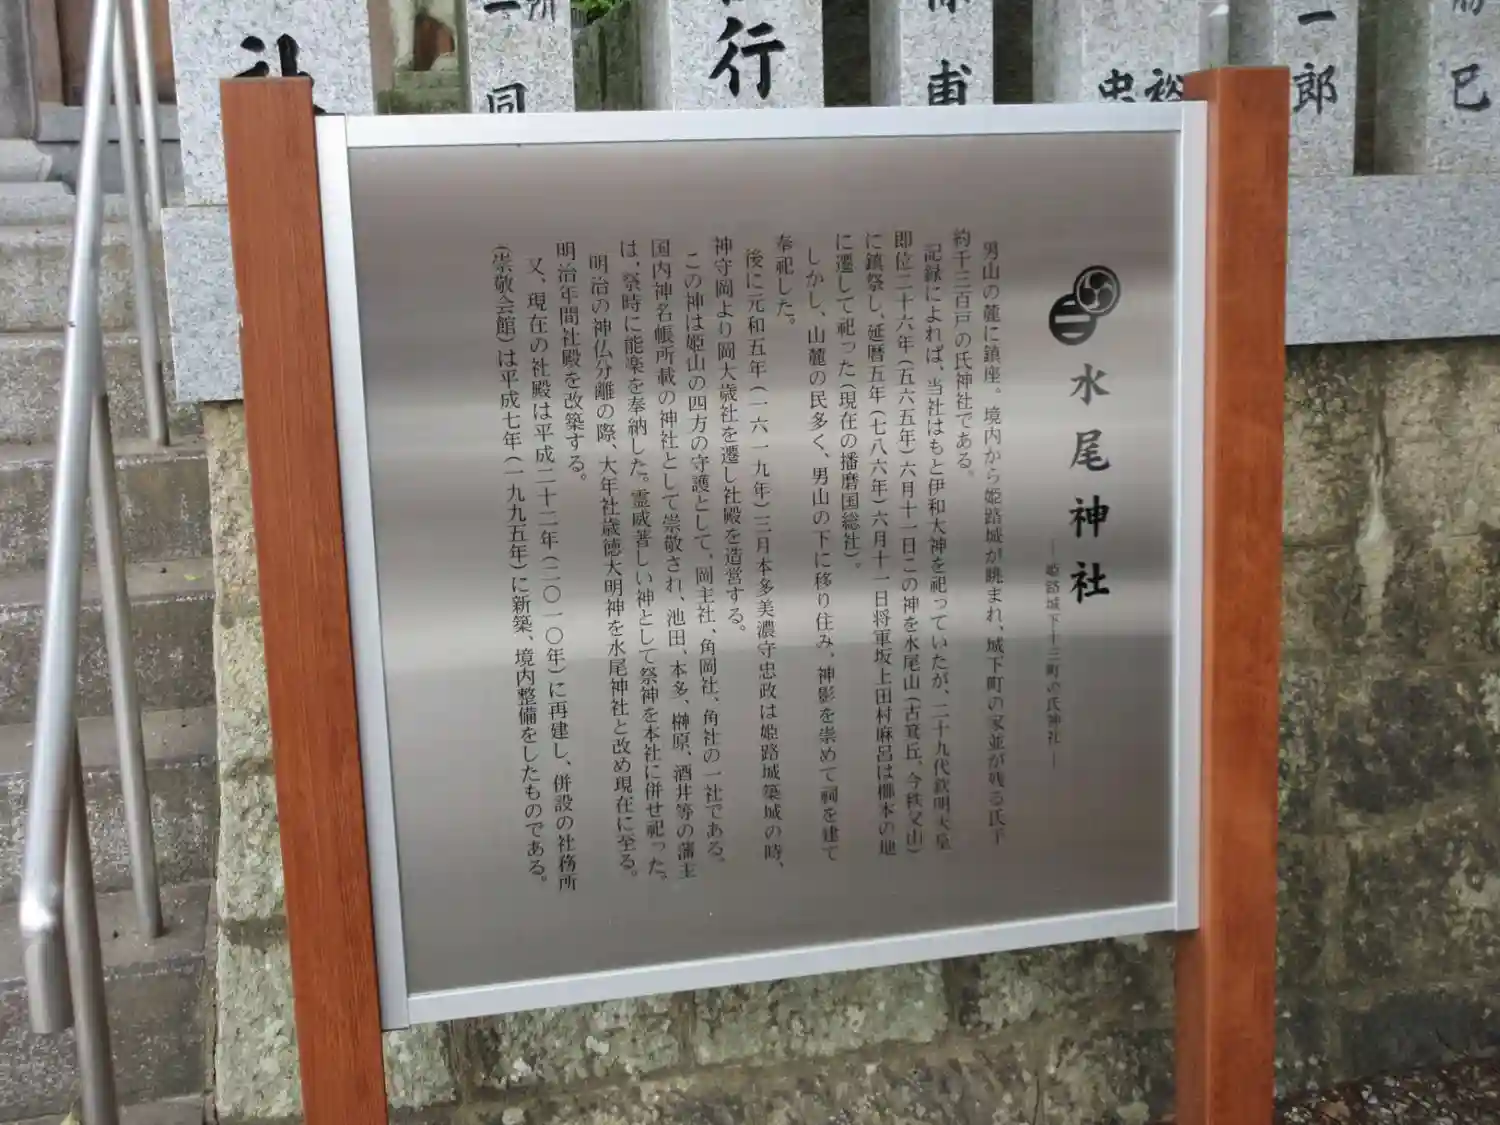 水尾神社
―姫路城下十三町の氏神社―
男山の麓に鎮座。境内から姫路城が眺まれ、城下町の家並が残る氏子
約千三百戸の氏神社である。
記録によれば、当社はもと伊和大神を祀っていたが、二十九代欽明天皇
即位二十六年(五六五年)六月十一日この神を水尾山(古箕丘、今秩父山)
に鎮祭し、延暦五年(七八六年)六月十一日将軍坂上田村麻呂は梛本の地
に遷して祀った(現在の播磨国総社)。
しかし、山麓の民多く、男山の下に移り住み、神影を崇めて祠を建て
奉祀した。
後に元和五年(一六一九年)三月本多美濃守忠政は姫路城築城の時、
神守岡より岡大歳社を遷し社殿を造営する。
この神は姫山の四方の守護として、岡主社、角岡社、角社の一社である。
国内神名帳所載の神社として崇敬され、池田、本多、榊原、酒井等の藩主
は、祭時に能楽を奉納した。霊威著しい神として祭神を本社に併せ祀った。
明治の神仏分離の際、大年社歳徳大明神を水尾神社と改め現在に至る。
明治年間社殿を改築する。
又、現在の社殿は平成二十二年(二〇一〇年)に再建し、併設の社務所
(崇敬会館)は平成七年(一九九五年)に新築、境内整備をしたものである。
行
同
甫
忠
裕
一郎
巳